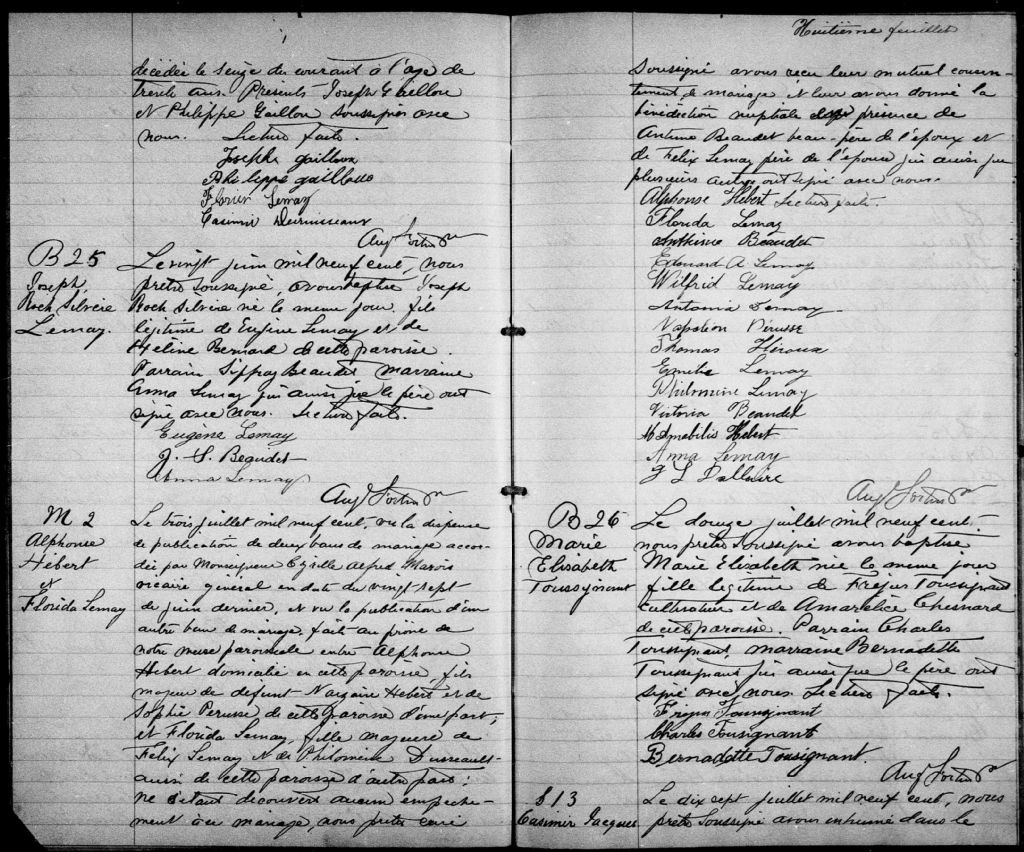 décédée le seize du courant à l'age de
trente ans. Presents Joseph Gaillou
et Philippe Gaillou soussignés avec
nous. Lecture faite.
Joseph gailloux
Philippe gailloux
Florian Lemay
Casimir Desruisseaux
Aug Fortin Ptre
B 25
Joseph,
Roch Silvère
Lemay.
Le vingt juin mil neuf cent, nous
prêtre soussigné, avons baptisé Joseph
Roch Silvère né le meme jour, fils
légitime de Eugène Lemay et de
Héline Bernard de cette paroisse.
Parrain Beaudet marraine
Anna Lemay qui ainsi que le père ont
signé avec nous. Lecture faite.
Eugène Lemay
J. S. Beaudet
Anna Lemay
Aug Fortin Ptre
M 2
Alphonse
Hébert
et
Florida Lemay
Le trois juillet mil neuf cent, vu la dispense
de publication de deux bans de mariage accor-
dée par Monseigneur Cyrille Alfred Marois
vicaire général en date du vingt sept
de juin dernier, et vu la publication d'un
autre ban de mariage, faite au prône de
notre messe paroissiale entre Alphonse
Hebert domicilié en cette paroisse, fils
majeur de defunt Nazaire Hebert et de
Sophie Perusse de cette paroisse d'une part;
et Florida Lemay, fille majeure de
Félix Lemay et de Philomène Dusseault
aussi de cette paroisse d'autre part;
ne s'étant découvert aucun empeche-
ment à ce mariage, nous prêtre curé
Huitième feuillet
soussigné avons reçu leur mutuel consen-
tement de mariage et leur avons donné la
bénédiction nuptiale en présence de
Antime Beaudet beau-père de l'époux et
de Félix Lemay père de l'épouse qui ainsi que
plusieurs autres ont signé avec nous.
Alphonse Hébert Lecture faite.
Florida Lemay
Anthime Beaudet
Edouard A. Lemay
Wilfrid Lemay
Antonia Lemay
Napoléon Perusse
Thomas Héroux
Emilie Lemay
Philomène Lemay
Victoria Beaudet
M Amabilis Hébert
Anna Lemay
J L Dallaire
Aug Fortin Ptre
B 26
Marie
Elisabeth
Toussignant
Le douze juillet mil neuf cent
nous prêtre soussigné avons baptisé
Marie Elisabeth née le meme jour
fille légitime de Fréjus Toussignant
cultivateur et de Chesnard
de cette paroisse. Parrain Charles
Toussignant, marraine Bernadette
Toussignant qui ainsi que le père ont
signé avec nous. Lecture faite.
Frejus Tousignant
Charles Tousignant
Bernadette Tousignant.
Aug Fortin Ptre
S 13
Casimir Jacques
Le dix sept juillet mil neuf cent, nous
prêtre soussigné avons inhumé dans le